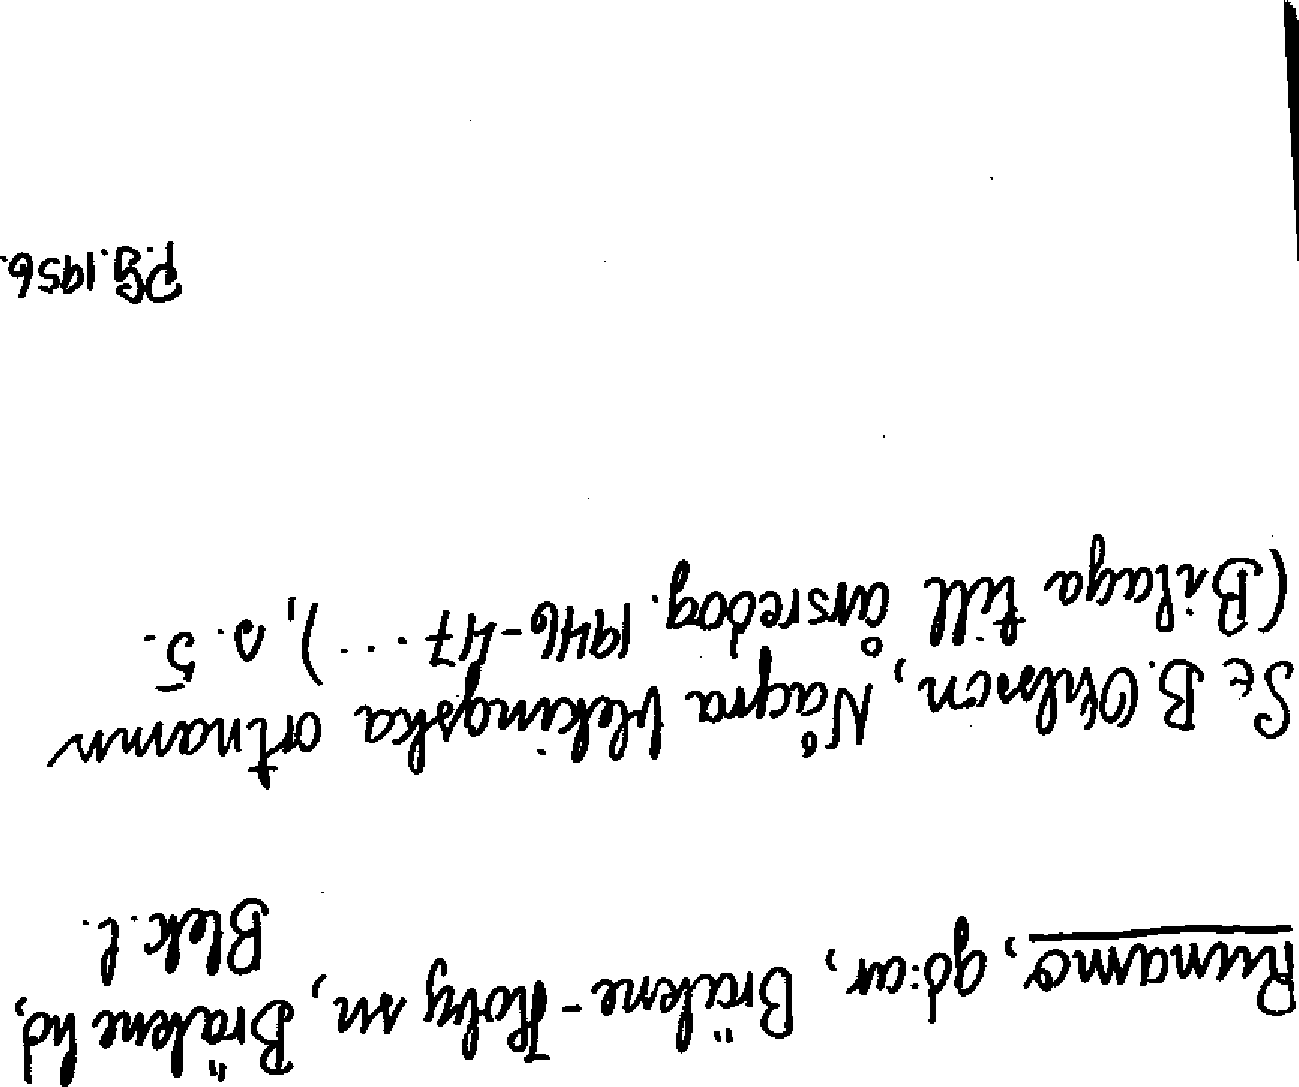 Runamo, gd:ar, Bräkne-Hoby sn, Bräkne hd,
Blek. l.
Se B. Ohlson, Några blekingska ortnamn
(Bilaga till årsredog. 1946-47 ...), s. 5.
P.G. 1956.